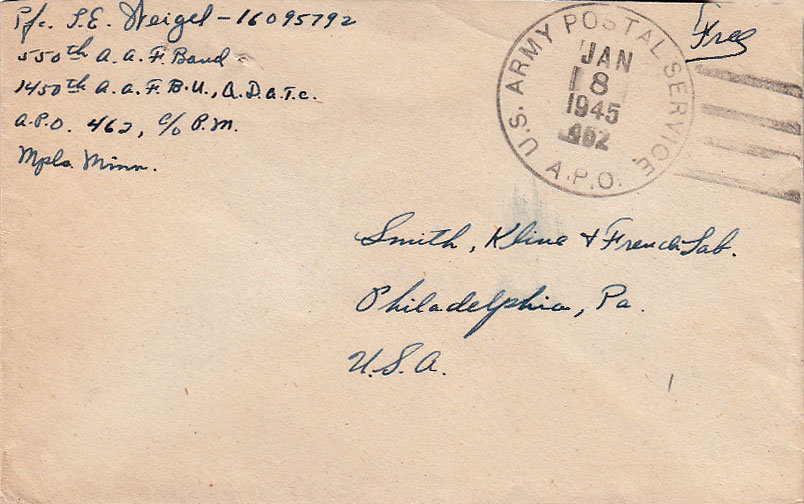 Pfc. S.E. Weigel - 16095792
550th A.A.F. Band
1450th A.A.F.B.U., A.D.A.T.C.
A.P.O. 462, c/o P.M.
Mpls. Minn.
Free
U.S. ARMY POSTAL SERVICE
JAN
18
1945
462
A.P.O.
Smith, Kline & French Lab.
Philadelphia, Pa.
U.S.A.